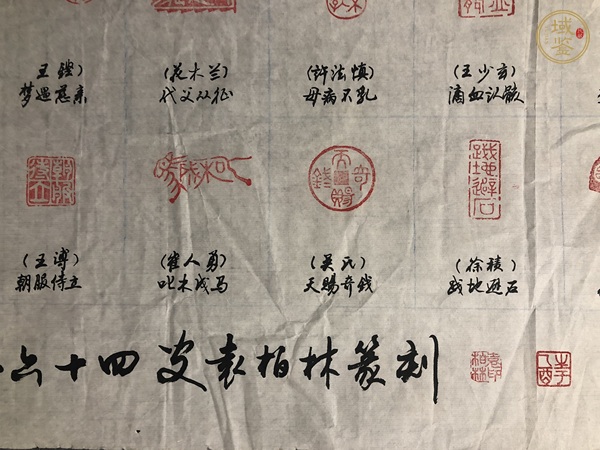 域鉴
王鏗
(花木兰)
(许法慎)
(王少玄)
梦遇慈亲
代父从征
母病不乳
滴血认骸
(王溥)
(崔人勇)
(吴氏)
(徐积)
朝服侍立
叱木成马
天赐奇钱
践地避石
六十四叟袁柏林篆刻